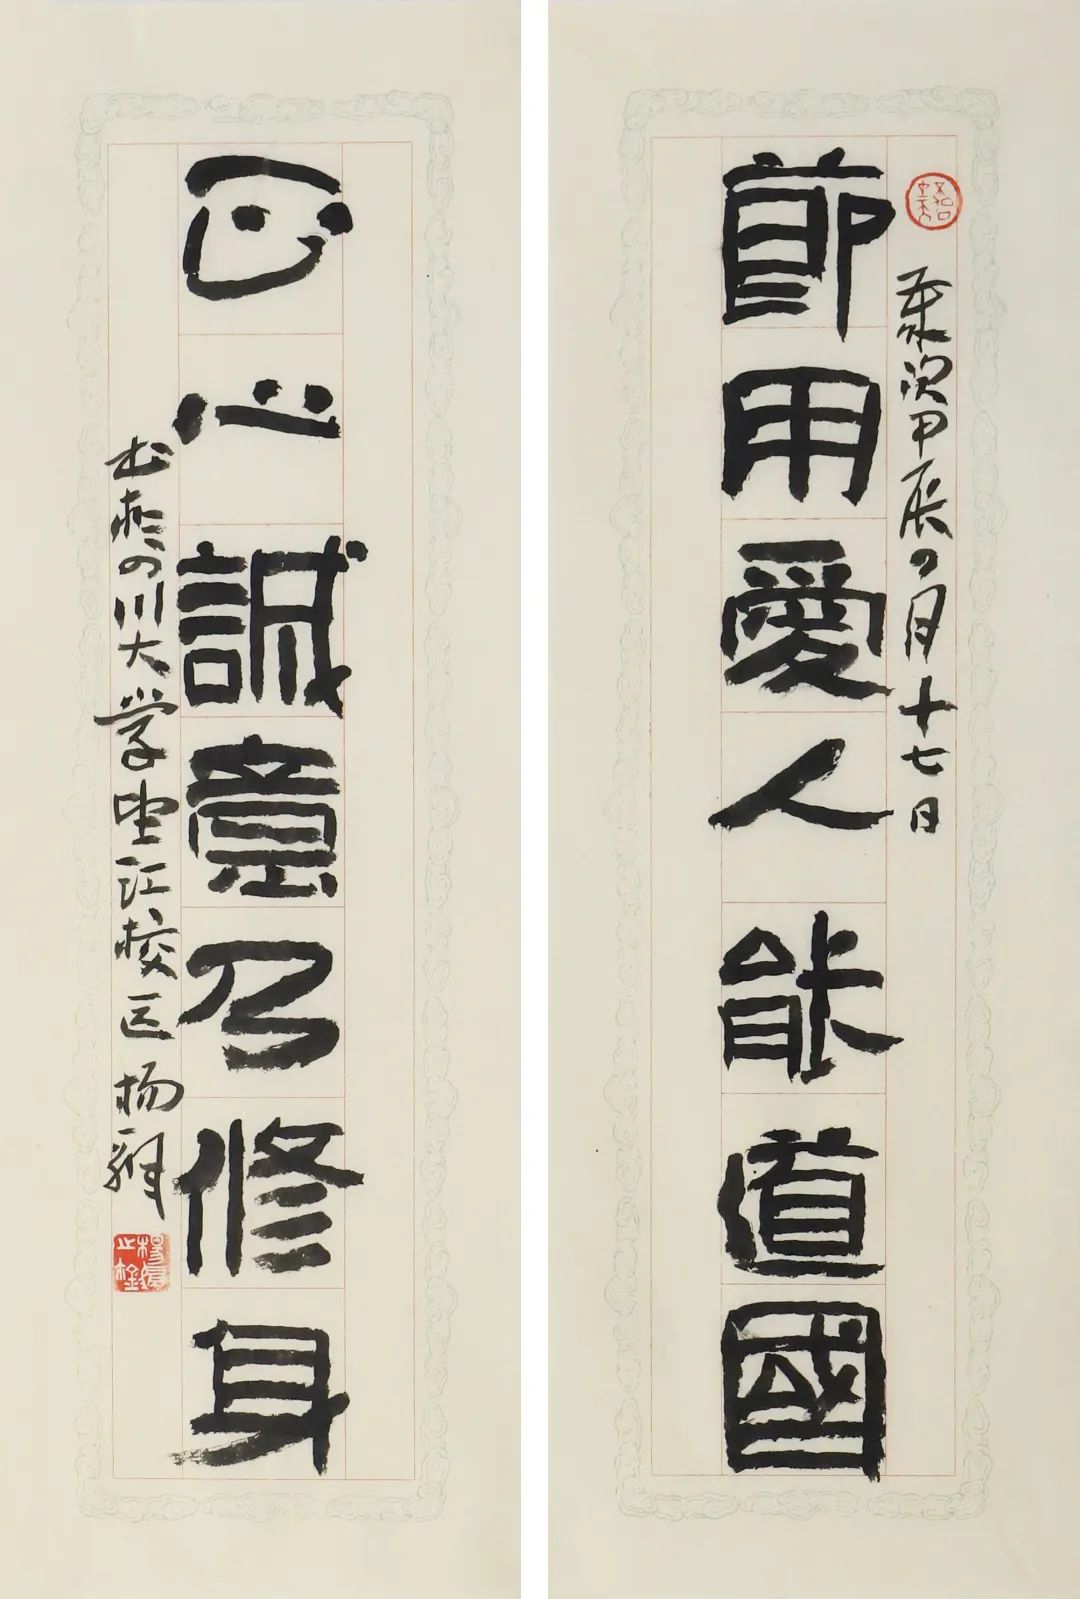 歲次甲辰四月十七日
節用愛人能道國
正心誠意乃修身
書於四川大学望江校区 杨